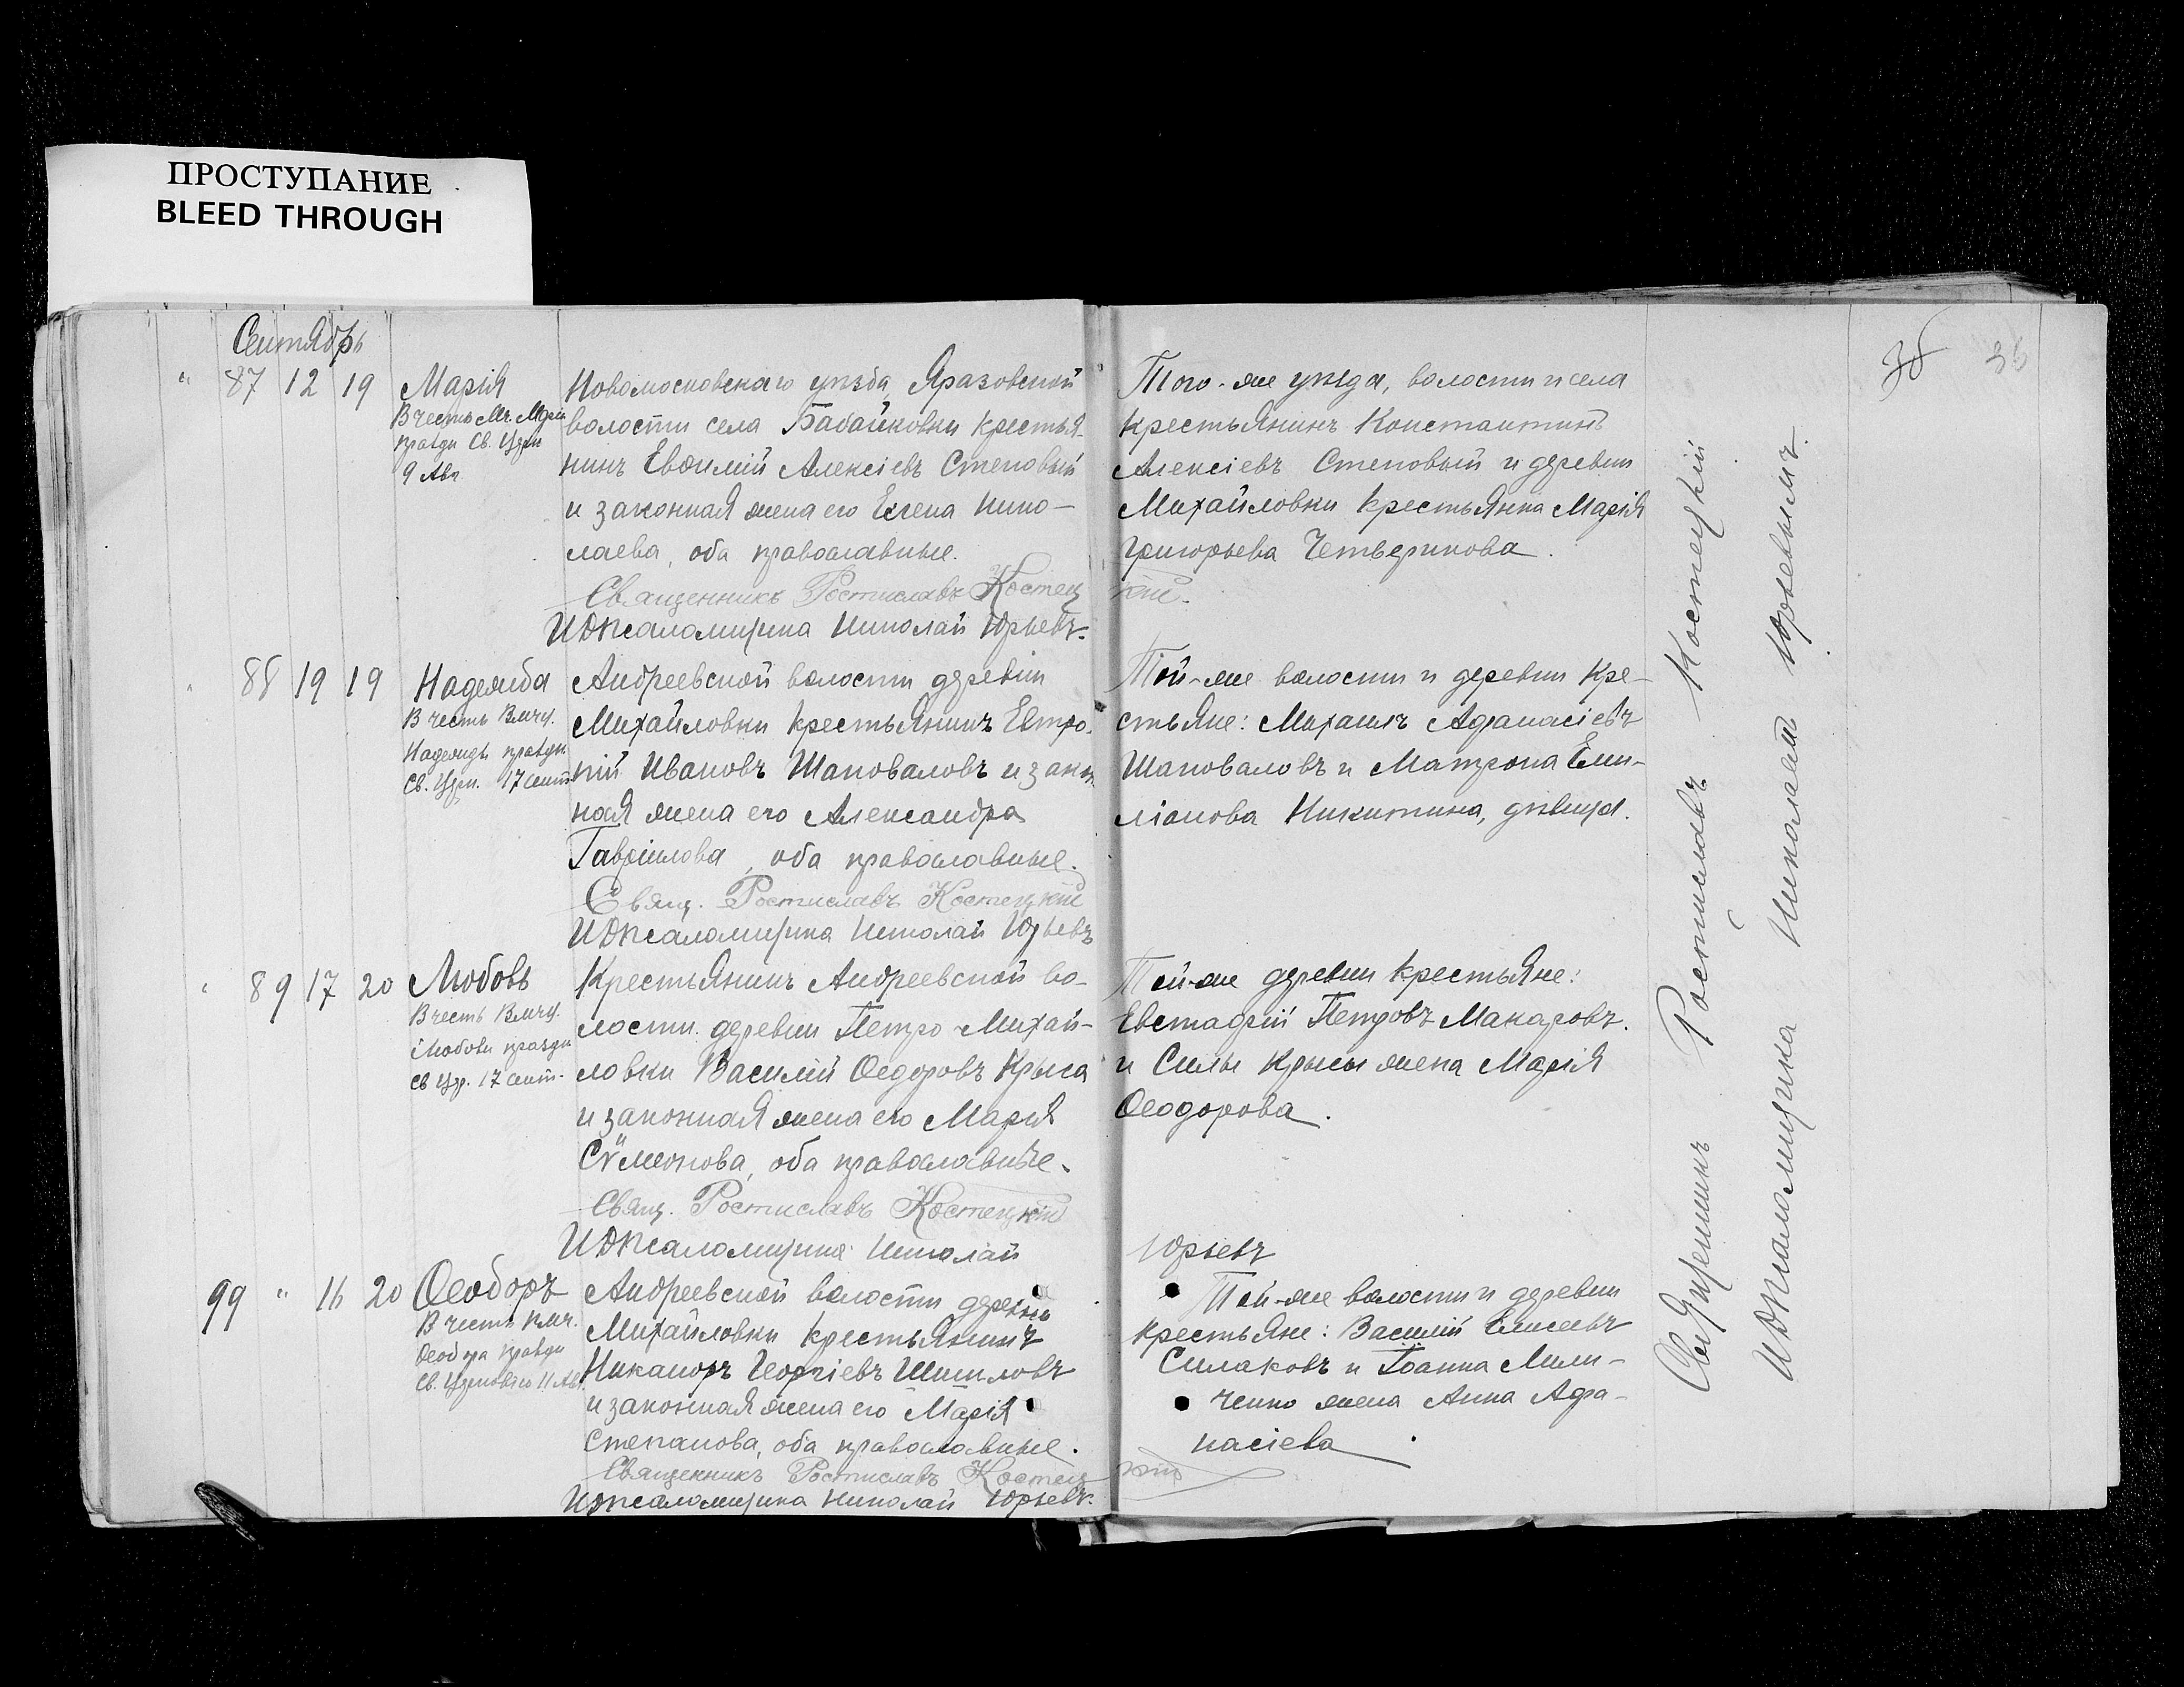 ПРОСТУПАНИЕ
BLEED THROUGH
Сентябрь
36
87 12 19 Марія
В честь Мч. Маріи
праздн Св. Церк
9 Авг
Новомосковскаго уѣзда,
волости села Бабайковки крестья-
нинъ Евѳимій Алексіевъ Степовый
и законная жена его Елена Нико-
лаева, оба православные.
Священникъ Ростиславъ Костец
кій.
ИДПсаломщика Николай Юрьевъ.
Того-же уѣзда, волости и села
крестьянинъ Константинъ
Алексіевъ Степовый и деревни
Михайловки крестьянка Марія
Григорьева Четверикова.
88 19 19 Надежда
В честь Вмчц.
Надежды праздн
Св. Церк. 17 Сент
Андреевской волости деревни
Михайловки крестьянинъ Евтро-
пій Ивановъ Шаповаловъ и закон
ная жена его Александра
Гавріилова, оба православные.
Свящ. Ростиславъ Костецкій
ИДПсаломщика Николай Юрьевъ
Той-же волости и деревни кре-
стьяне: Михаилъ Афанасіевъ
Шаповаловъ и Матрона Еми-
ліанова Никитина, дѣвица.
89 17 20 Любовь
В честь Вмчц.
Любови праздн
Св Цер. 17 Сент.
Крестьянинъ Андреевской во-
лости деревни Петро-Михай-
ловки Василій Ѳеодоровъ Крыса
и законная жена его Марія
Сѵмеонова, оба православные.
Свящ. Ростиславъ Костецкій
ИДПсаломщика Николай
Юрьевъ
Той-же деревни крестьяне:
Евстафій Петровъ Макаровъ.
и Силы Крысы жена Марія
Ѳеодорова.
99 " 16 20 Ѳеодоръ
В честь
Ѳеодора праздн
Св. Церковію 11 Авг.
Андреевской волости деревни
Михайловки крестьянинъ
Никаноръ Георгіевъ Шипиловъ
и законная жена его Марія
Степанова, оба православные.
Священникъ Ростиславъ Костец
кій
ИДПсаломщика Николай Юрьевъ.
Той-же волости и деревни
крестьяне: Василій Елисеевъ
Силаковъ и Іоанна Мили-
ченко жена Анна Афа-
насіева
Священникъ Ростиславъ Костецкій
ИДПсаломщика Николай Юрьевымъ.